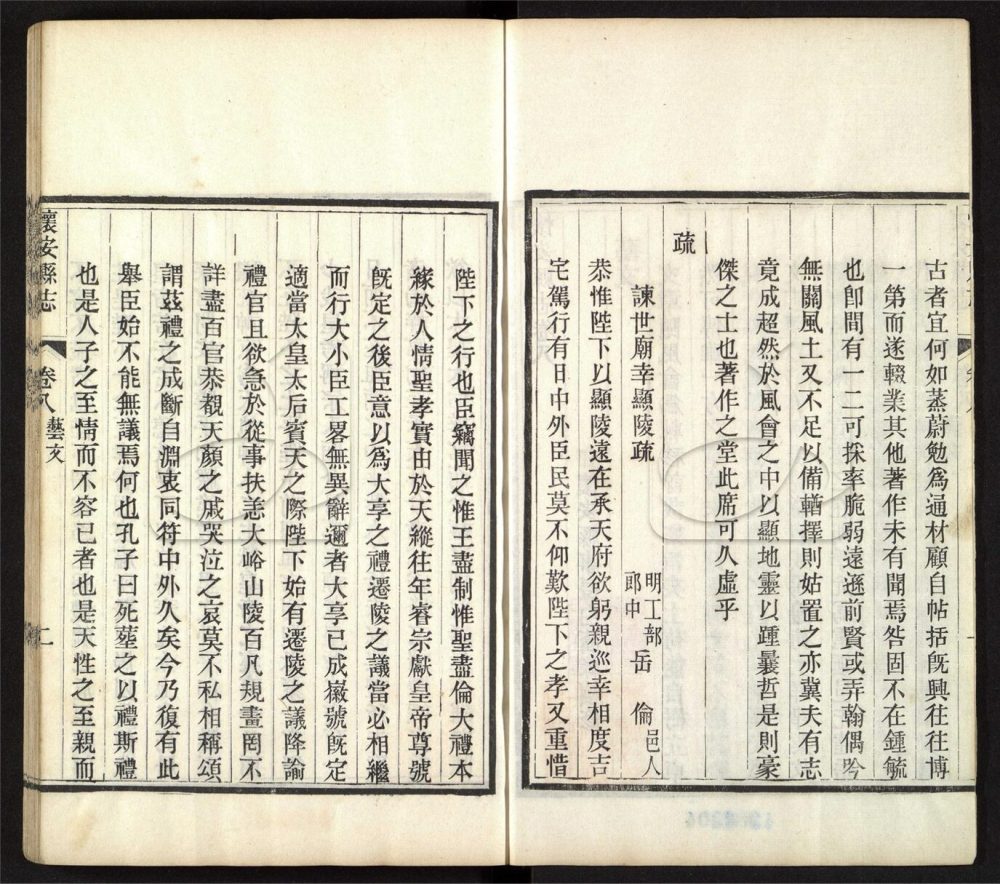 古者宜何如蒸蔚勉爲通材顧自帖括旣興往往博
一第而遂輟業其他著作未有聞焉咎固不在鍾毓
也卽間有一二可採率脆弱遠遜前賢或弄翰偶吟
無關風土又不足以備輶擇則姑置之亦冀夫有志
竟成超然於風會之中以顯地靈以踵曩哲是則豪
傑之士也著作之堂此席可久虛乎
疏
諫世廟幸顯陵疏 明工部郎中 岳 倫 邑人
恭惟陛下以顯陵遠在承天府欲躬親巡幸相度吉
宅駕行有日中外臣民莫不仰歎陛下之孝又重惜
陛下之行也臣竊聞之惟王盡制惟聖盡倫大禮本
緣於人情聖孝實由於天縱往年睿宗獻皇帝尊號
旣定之後臣意以爲大享之禮遷陵之議當必相繼
而行大小臣工畧無異辭邇者大享已成徽號旣定
適當太皇太后賓天之際陛下始有遷陵之議降諭
禮官且欲急於從事扶恙大峪山陵百凡規畫罔不
詳盡百官恭覩天顏之戚哭泣之哀莫不私相稱頌
謂茲禮之成斷自淵衷同符中外久矣今乃復有此
舉臣始不能無議焉何也孔子曰死葬之以禮斯禮
也是人子之至情而不容已者也是天性之至親而
懷安縣志 卷八 藝文 二